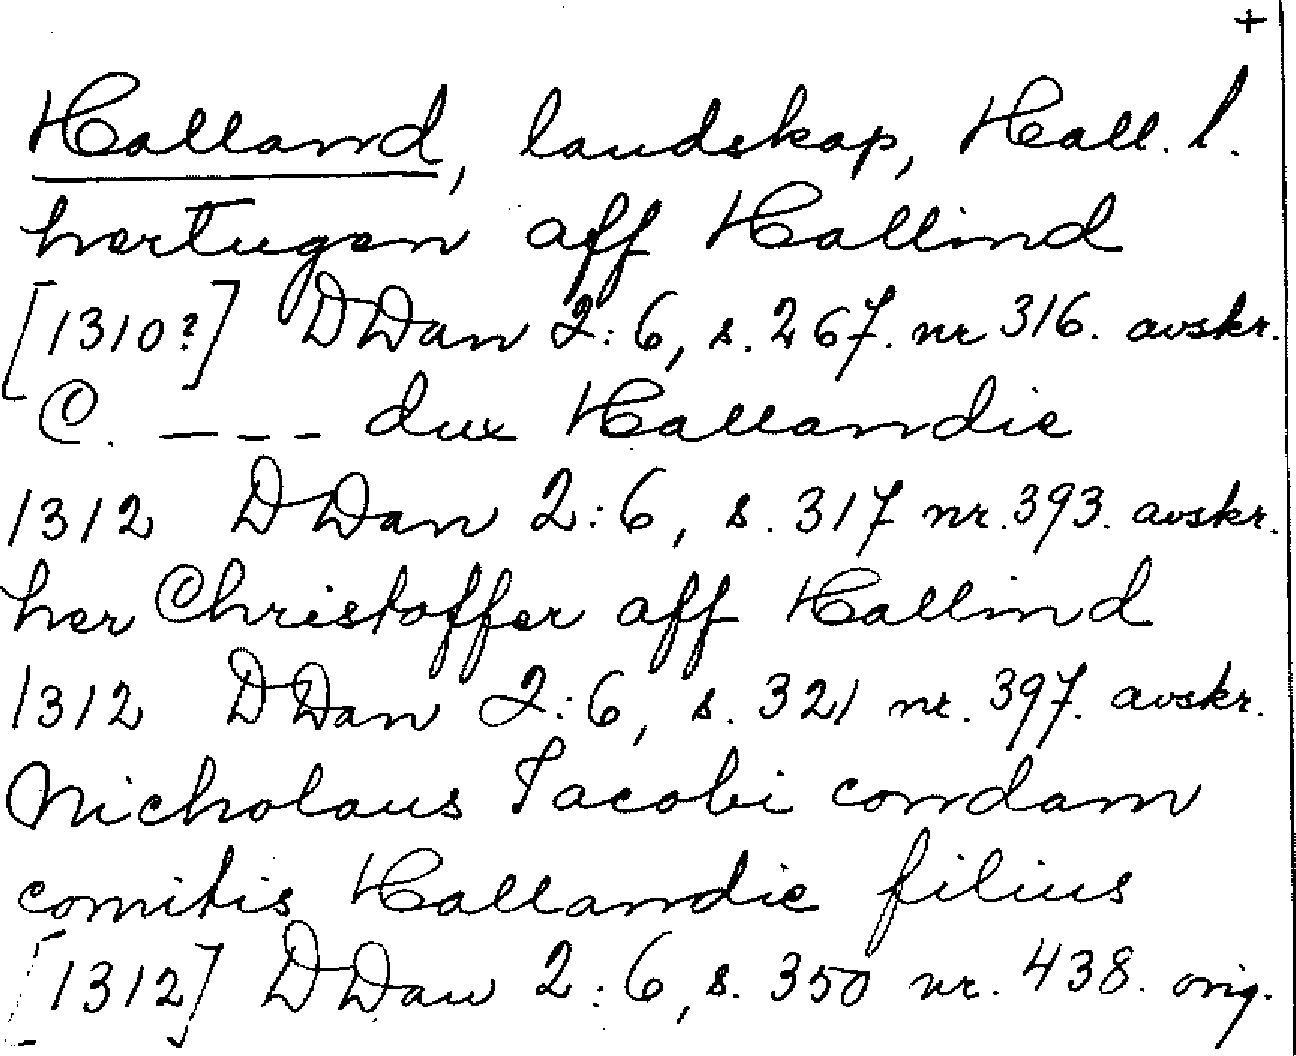 +
Halland, landskap, Hall. l.
hertugen aff Hallind
[1310?] DDan 2:6, s. 267. nr 316. avskr.
C. _ _ _ _ dux Hallandie
1312 DDan 2:6, s. 317 nr. 393. avskr.
her Christoffer aff Hallind
1312 DDan 2:6, s. 321 nr. 397. avskr.
Nicholaus Jacobi condam
comitis Hallandie filius
[1312] DDan 2:6, s. 350 nr. 438. orig.